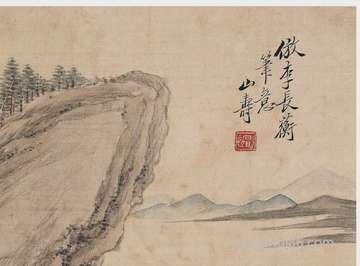 倣李長蘅
筆意
山壽